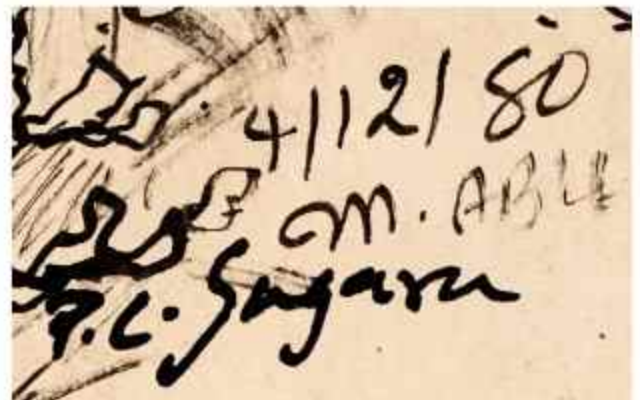 4/12/80
M. ABU
P.C. Sagara